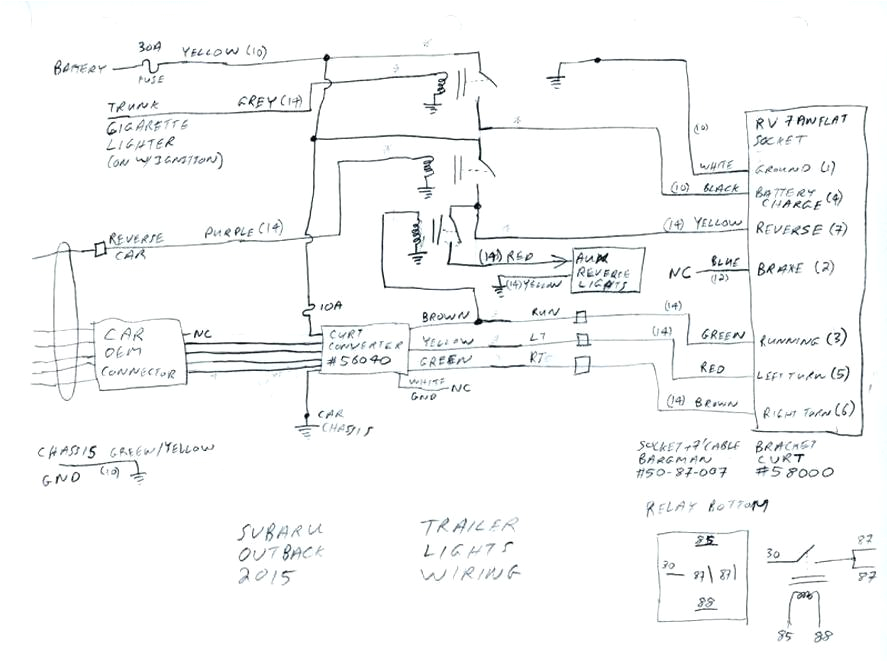 30A
YELLOW (10)
BATTERY
FUSE
TRUNK
GREY (14)
GIGARETTE
LIGHTER
(ON W/IGNITION)
REVERSE
CAR
PURPLE (14)
10A
CAR
OEM
CONNECTOR
NC
CURT
CONVERTER
#56040
BROWN
RUN
YELLOW
LT
GREEN
RT
WHITE
GND
NC
CAR
CHASSIS
(14) RED
(14) YELLOW
AUX
REVERSE
LIGHTS
RV 7 PIN FLAT
SOCKET
(10)
WHITE
GROUND (1)
(10) BLACK
BATTERY
CHARGE (4)
(14) YELLOW
REVERSE (7)
NC
BLUE
(12)
BRAKE (2)
(14)
GREEN
RUNNING (3)
(14)
RED
LEFT TURN (5)
(14) BROWN
RIGHT TURN (6)
CHASSIS GREEN/YELLOW
GND (10)
SOCKET + 7' CABLE
BARGMAN
#50-87-007
BRACKET
CURT
#58000
SUBARU
OUTBACK
2015
TRAILER
LIGHTS
WIRING
RELAY BOTTOM
85
30
87
87
88
30
87
87
85
88